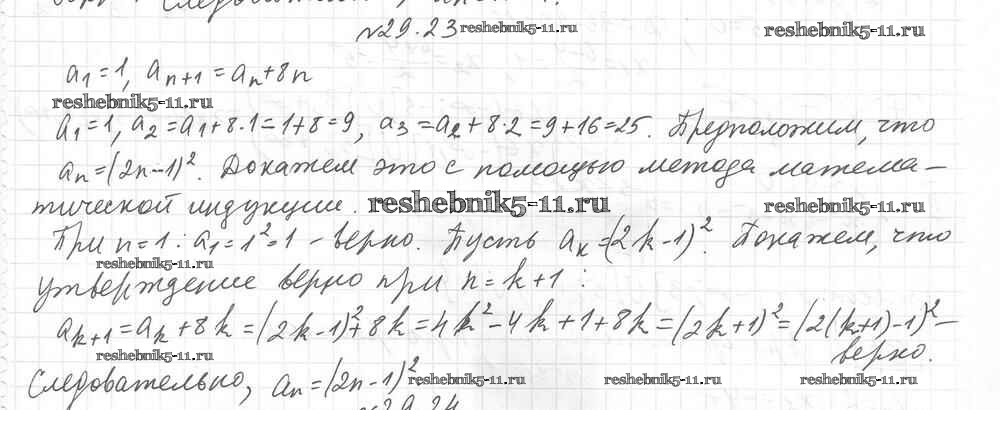 №29.23 reshebnik5-11.ru reshebnik5-11.ru
a₁=1, aₙ₊₁=aₙ+8n
reshebnik5-11.ru
a₁=1, a₂=a₁+8·1=1+8=9, a₃=a₂+8·2=9+16=25. Предположим, что
aₙ=(2n-1)². Докажем это с помощью метода матема-
тической индукции. reshebnik5-11.ru reshebnik5-11.ru
При n=1: a₁=1²=1 - верно. Пусть aₖ=(2k-1)². Покажем, что
reshebnik5-11.ru
утверждение верно при n=k+1:
aₖ₊₁=aₖ+8k=(2k-1)²+8k=4k²-4k+1+8k=(2k+1)²=(2(k+1)-1)²-
reshebnik5-11.ru
верно.
Следовательно, aₙ=(2n-1)² reshebnik5-11.ru reshebnik5-11.ru reshebnik5-11.ru
№29.24